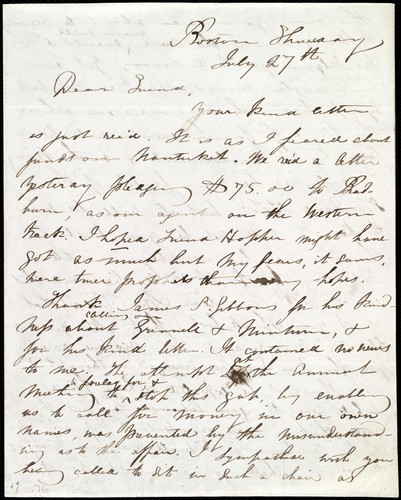 Boston Thursday
July 27th
Dear Friend,
Your kind letter
is just rec'd. It is as I feared about
funds over Nantucket. We rec'd a letter
yesterday pledging $75.00 to Rad
burn, as our agent on the Western
track. I hoped Friend Hopper might have
got as much but my fears, it seems,
were truer prophets than my hopes.
Thank James S. Gibbons for his kind
ness about calling on Grinnell & Minturn, &
for his kind letter. It contained no news
to me. The attempt at the Annual
Meeting to forestall, & stop this gab, by enabling
us to call for money in our own
names, was prevented by the misunderstand
ing as to the affair. I sympathise with you
being called to sit in such a chair as